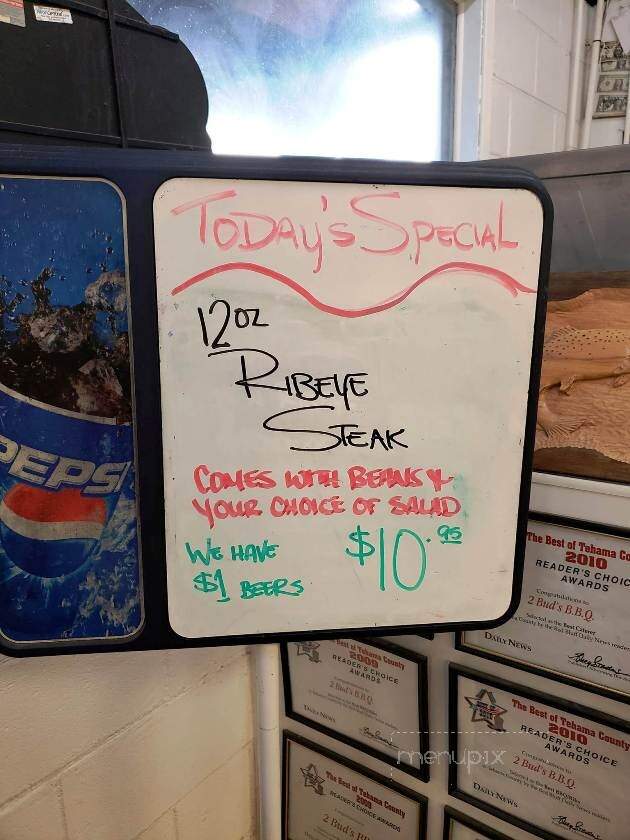 TODAY'S SPECIAL
12 OZ
RIBEYE
STEAK
COMES WITH BEANS &
YOUR CHOICE OF SALAD
WE HAVE
$1 BEERS
$10.95
PEPSI
The Best of Tehama Co
2010
READER'S CHOIC
AWARDS
Congratulations to:
2 Bud's B.B.Q.
Selected as the Best Caterer
County by the Red Bluff Daily News reader
DAILY NEWS
Best of Tehama County
2009
READER'S CHOICE
AWARDS
2 Bud's B.B.Q.
DAILY NEWS
The Best of Tehama County
2010
READER'S CHOICE
AWARDS
Congratulations to:
2 Bud's B.B.Q.
DAILY NEWS
The Best of Tehama County
2009
READER'S CHOICE AWARDS
2 Bud's B
menupix